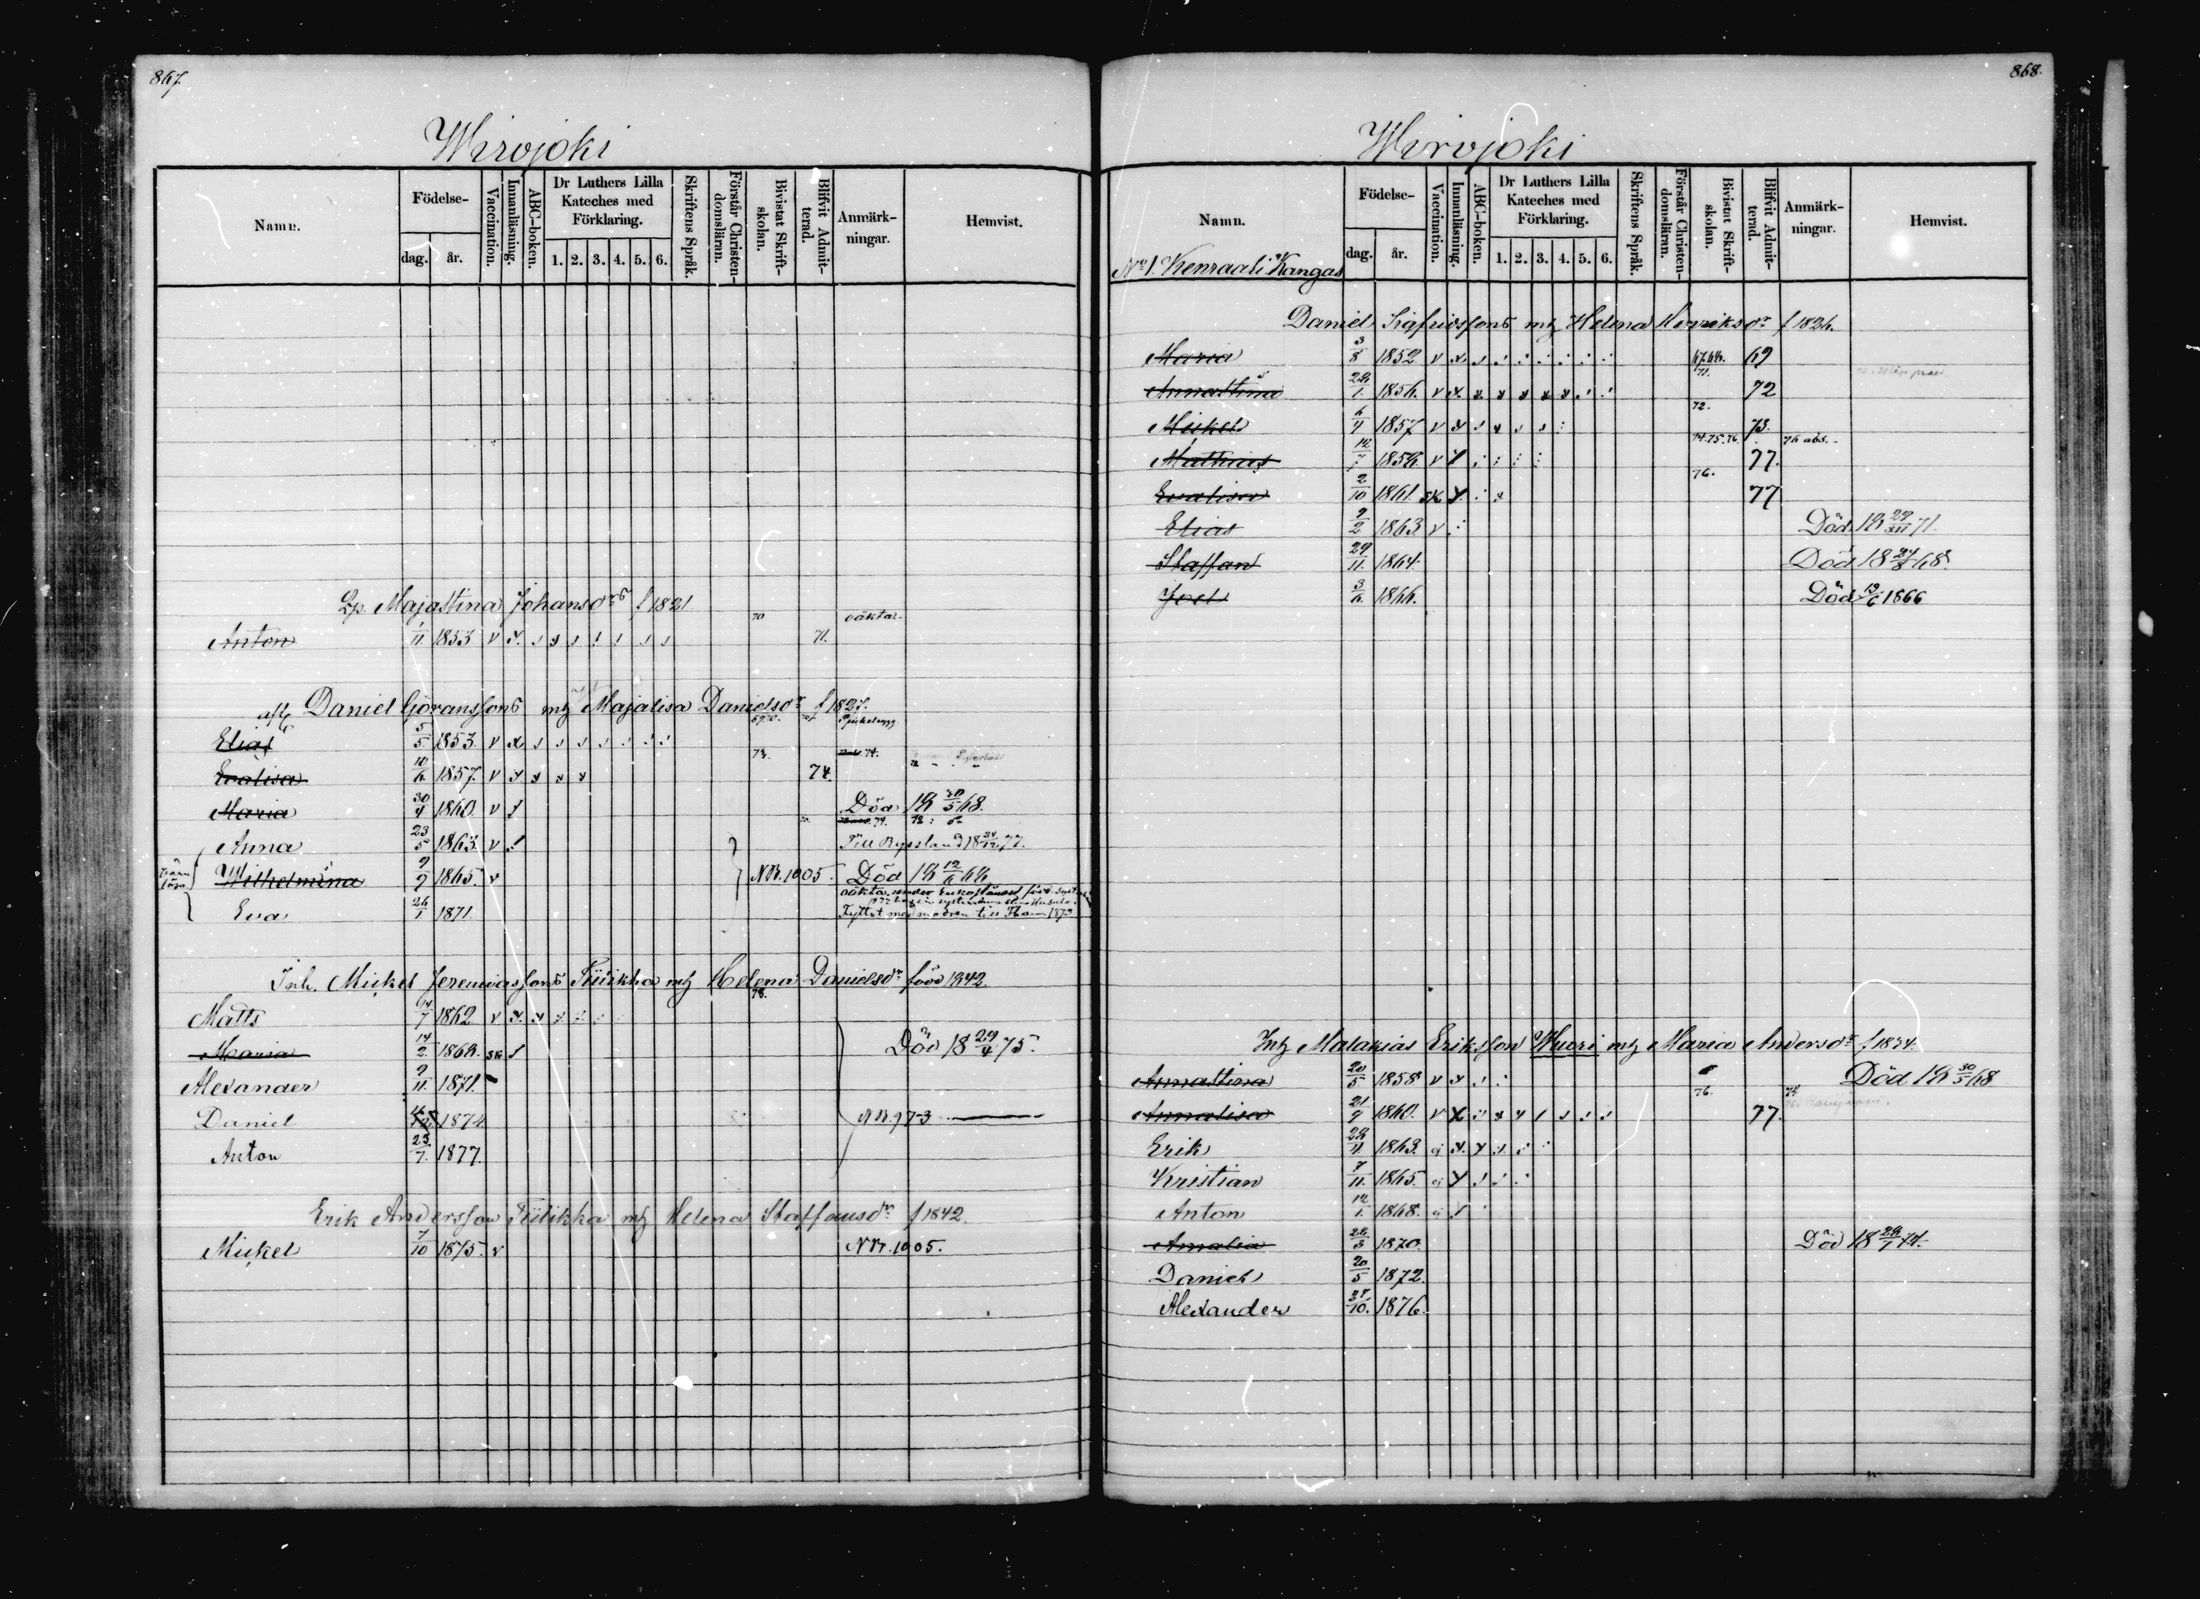 867.
Wirojoki
Namn.
Födelse-
dag. år.
Vaccination.
Innanläsning.
ABC-boken.
Dr Luthers Lilla
Kateches med
Förklaring.
1. 2. 3. 4. 5. 6.
Skriftens Språk.
Förstår Christen-
domsläran.
Bivistat Skrift-
skolan.
Blifvit Admit-
terad.
Anmärk-
ningar.
Hemvist.
Lp. Majastina Johansdrs f 1821
70 oäkta
Anton 1/11 1853 v 71.
Daniel Göranssons mhg Majalisa Danielsdr f 1827.
Elias 5/5 1853. v
Evalisa 10/6 1857. v 74.
Maria 30/4 1860. v Död 18 30/5 68.
Anna 23/5 1863. v Till Ryssland 18 77.
Wilhelmina 9/9 1865. v N Nr. 1005. Död 18 12/6 68
Eva 26/1 1871
Inh. Mickel Jeremiassons Tiitikka mhg Helena Danielsdr född 1842.
Matts 14/7 1862 v
Maria 14/2 1868. Död 18 29/4 75.
Alexander 9/11 1871.
Daniel 1874 N Nr. 973
Anton 23/7. 1877.
Erik Andersson Tiitikka mhg Helena Staffansdr f 1842.
Mickel 7/10 1875. v N Nr. 1005.
868.
Wirojoki
Namn.
Födelse-
dag. år.
Vaccination.
Innanläsning.
ABC-boken.
Dr Luthers Lilla
Kateches med
Förklaring.
1. 2. 3. 4. 5. 6.
Skriftens Språk.
Förstår Christen-
domsläran.
Bivistat Skrift-
skolan.
Blifvit Admit-
terad.
Anmärk-
ningar.
Hemvist.
No 1. Kenraali Kangas
Daniel Sigfridssons mhg Helena Henriksdr f 1826.
Maria 3/8 1852 v 69
71.
Annastina 1856. v 72
72.
Mickel 6/4 1857 v 73.
74. 75. 76. 76 abs.
Mathias 1858. v 77.
76.
Evalisa 2/10 1861. 77
Elias 9/2 1863. v Död. 18 71
Staffan 29/11. 1864. Död 18 68.
Joel 3/6. 1866. Död 1866
Maria Andersdr f 1834.
Annastina 20/5 1858 v Död 18 30/5 68
76.
Annalisa 21/9 1860. v 77.
Erik 28/4 1863.
Kristian 7/11. 1865.
Anton 12/1. 1868.
Amalia 26/3 1870. Död 18
Daniel 20/5 1872.
Alexander 1876.